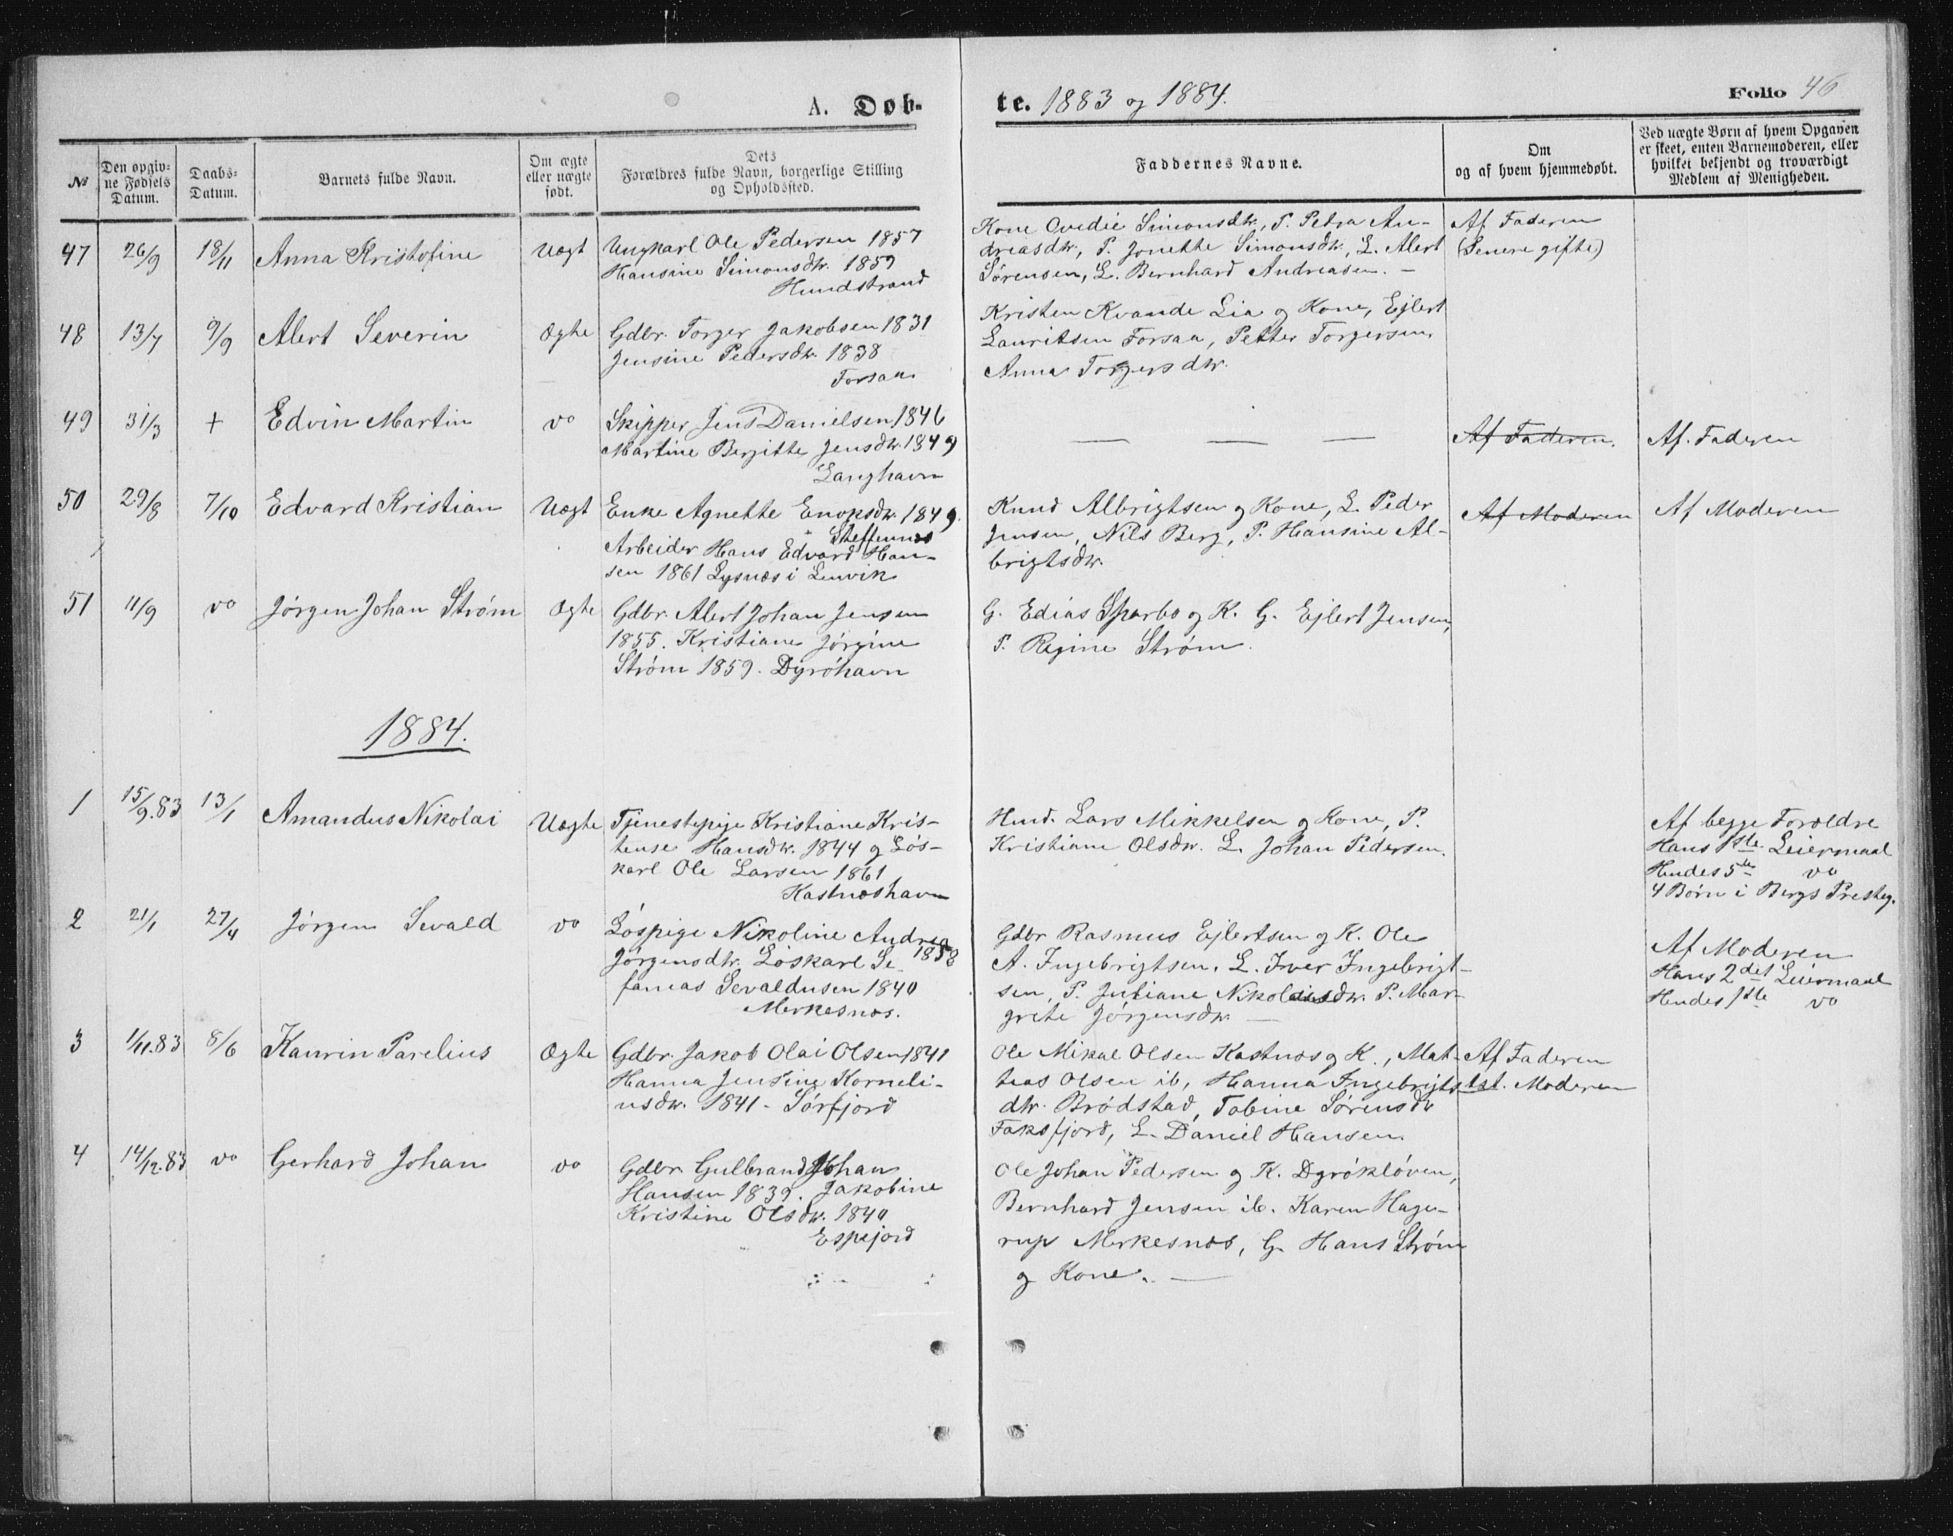 A. Døb-
te. 1883 og 1884.
Folio 46
№
Den opgiv-
ne Fødsels
Datum.
Daabs-
Datum.
Barnets fulde Navn.
Om ægte
eller uægte
født.
Dets
Forældres fulde Navn, borgerlige Stilling
og Opholdssted.
Faddernes Navne.
Om
og af hvem hjemmedøbt.
Ved uægte Børn af hvem Opgaven
er skeet, enten Barnemoderen, eller
hvilket bekjendt og troværdigt
Medlem af Menigheden.
47 26/9 18/11 Anna Kristofine Uægt
Ungkarl Ole Pedersen 1857
Hansine Simonsdtr. 1859
Hundstrand
Kone Ovedie Simonsdtr, P. Petra An-
dreasdtr, P. Jonette Simonsdtr, L. Alert
Sørensen, L. Bernhard Andreasen. —
Af Faderen
(Senere gifte)
48 13/7 9/9 Alert Severin Ægte
Gdbr. Torger Jakobsen 1831
Jensine Pedersdtr. 1838
Forsaa
Kristen Kvande Lia og Kone, Ejlert
Lauritsen Forsaa, Petter Torgersen,
Anna Torgersdtr.
49 31/3 + Edvin Martin vo
Skipper Jens Danielsen 1846
Martine Bergitte Jensdtr. 1849
Langhavn
— — —
Af Faderen.
Af. Faderen
50 29/8 7/10 Edvard Kristian Uægt
Enke Agnette Enoksdtr. 1849.
Steffennes
Arbeider Hans Edvard Han-
sen 1861 Lysnæs i Lenvik
Knud Albrigtsen og Kone, L. Peder
Jensen, Nils Berg, P. Hansine Al-
brigtsdtr.
Af Moderen
Af Moderen
51 11/9 vo Jørgen Johan Strøm Ægte
Gdbr. Alert Johan Jensen
1855. Kristiane Jørgine
Strøm 1859. Dyröhavn
G. Edias Sparbo og K. G. Ejlert Jensen,
P. Regine Strøm.
1884.
1 15/9.83 13/1 Amandus Nikolai Uægte
Tjenestepige Kristiane Kris-
tense Hansdtr. 1844 og Løs-
karl Ole Larsen 1861
Kastnæshavn
Husd. Lars Mikkelsen og Kone, P.
Kristiane Olsdtr. L. Johan Pedersen.
Af begge Forældre
Hans 1ste Leiermaal
Hendes 5te vo
4 Børn i Bergs Presteg.
2 21/1 27/4 Jørgen Sevald vo
Løspige Nikoline Andrea
Jørgensdtr. 1858 Løskarl Se-
fanias Sevaldusen 1840
Merkesnæs.
Gdbr Rasmus Ejlertsen og K. Ole
A. Ingebrigtsen, L. Iver Ingebrigt-
sen, P. Juliane Nikolaisdtr. P. Mar-
grete Jørgensdtr. —
Af Moderen
Hans 2det Leiermaal
Hendes 1ste vo
3 1/11.83 8/6 Kaurin Parelius Ægte
Gdbr. Jakob Olai Olsen 1841
Hanna Jensine Korneli-
usdtr. 1841 - Sørfjord
Ole Mikal Olsen Kastnæs og K., Mat-
tias Olsen ib, Hanna Ingebrigts
dtr. Brødstad, Tobine Sørensdtr
Faksfjord, L. Daniel Hansen
Af Faderen
tst. Moderen
4 14/12.83 vo Gerhard Johan vo
Gdbr. Gulbrand Johan
Hansen 1839. Jakobine
Kristine Olsdtr. 1840
Espejord
Ole Johan Pedersen og K. Dyrökløven,
Bernhard Jensen ib. Karen Hage-
rup Merkesnæs, G. Hans Strøm
og Kone. —